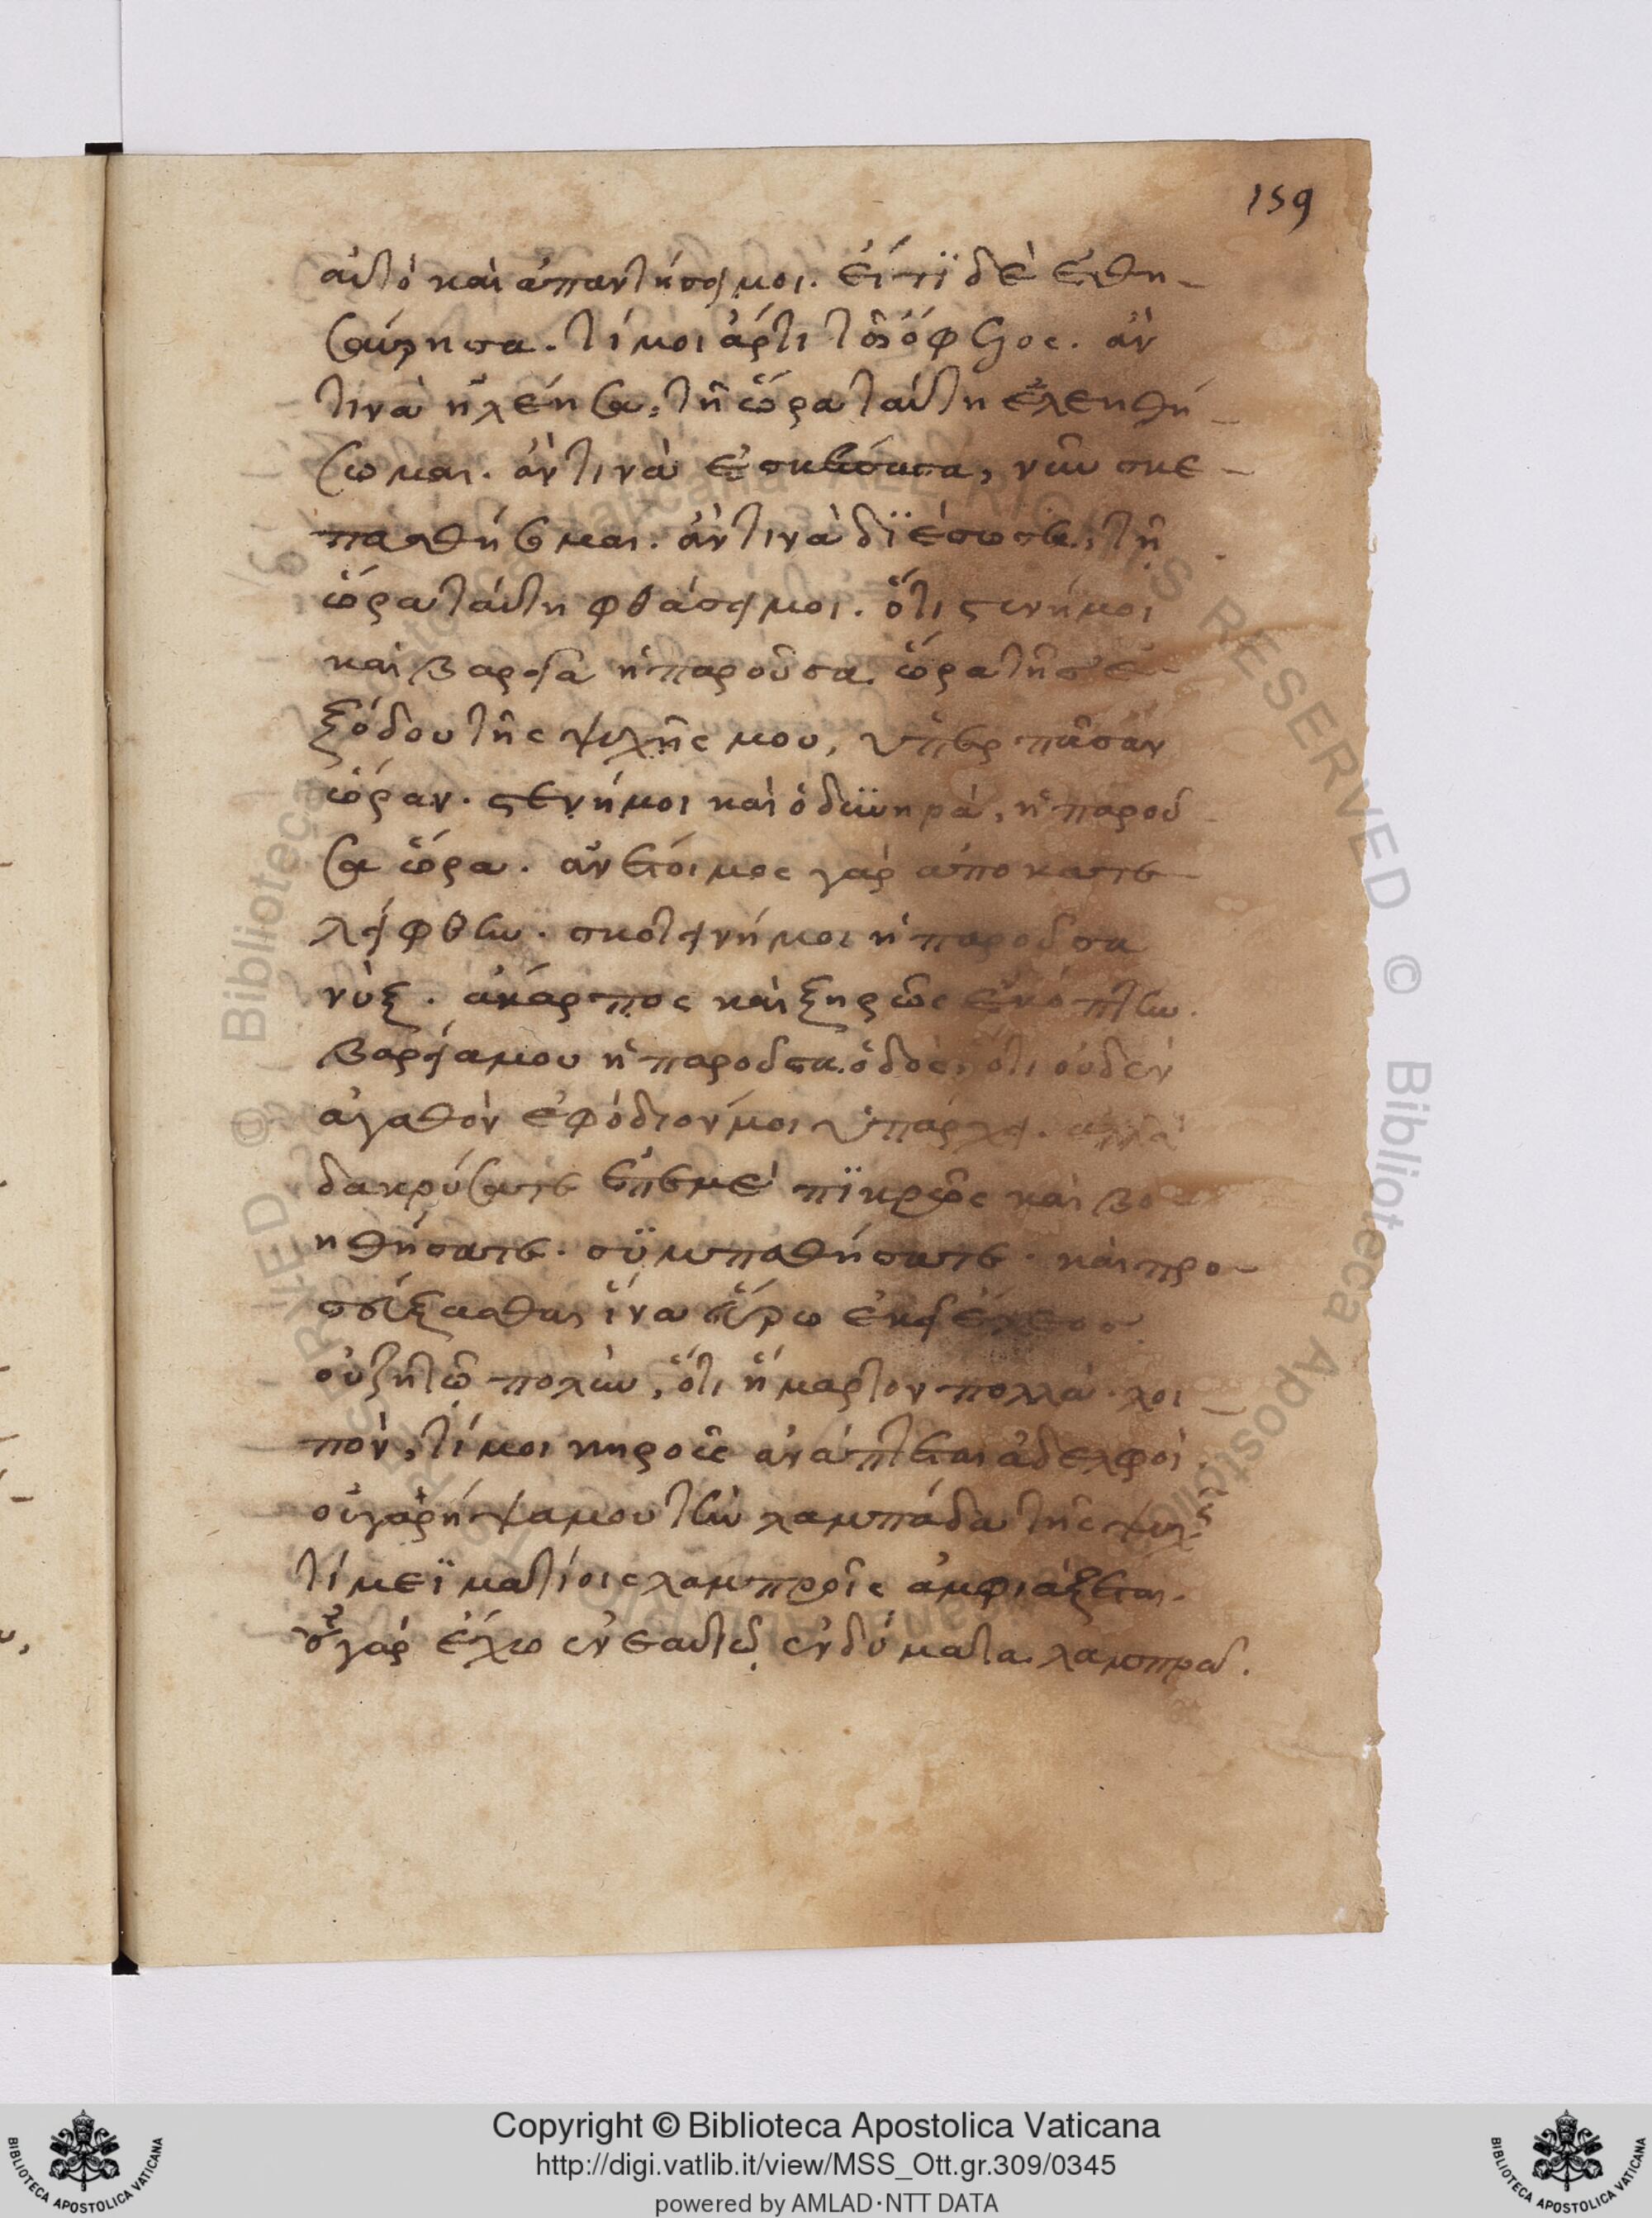 159
αὐτὸ καὶ ἀπαντήσει μοι. εἴ τϊ δὲ ἐθη-
σαύρησα. τί μοι ἄρτι τὸ ὄφελος. ἄν
τινὰ ἠλέησα, τῇ ὥρα ταύτη ἐλεηθή-
σωμαι. ἄν τινὰ ἐσκέπασα, νῦν σκε-
πασθήσομαι. ἄν τινὰ δϊέσωσα, τῇ
ὥρα ταύτη φθάσει μοι. ὅτι στενή μοι
καὶ βαρεία ἡ παροῦσα ὥρα τῆς ἐ-
ξόδου τῆς ψυχῆς μου, ὑπὲρ πᾶσαν
ὥραν. στενή μοι καὶ ὀδϋνηρά, ἡ παροῦ
σα ὥρα. ἀνέτοιμος γὰρ
λείφθην. σκοτεινή μοι ἡ παροῦσα
νύξ. ἄκαρπος καὶ ξηρῶς ἐκόπτην.
βαρεία μου ἡ παροῦσα ὁδὸς, ὅτι οὐδὲν
ἀγαθὸν ἐφόδιον μοι ὑπάρχει. ἀλλὰ
δακρύσατε ἐπεμὲ πϊκρῶς καὶ βο
ηθήσατε. σϋμπαθήσατε. καὶ προ-
σεύξασθαι ἵνα εὕρω ἐκεῖ ἔλεος
οὐ ζητῶ πολὺν, ὅτι ἥμαρτον πολλά. λοι-
πὸν, τί μοι κηροὺς ἀνάπτεται ἀδελφοί.
οὐ γὰρ ἧψα μου τὴν λαμπάδα τῆς ψυχῆς
τί με ϊματίοις λαμπροῖς ἀμφιάζεται.
οὐ γὰρ ἔχω ἐν ἑαυτῷ ἐνδύματα λαμπρά.
Copyright © Biblioteca Apostolica Vaticana
http://digi.vatlib.it/view/MSS_Ott.gr.309/0345
powered by AMLAD·NTT DATA